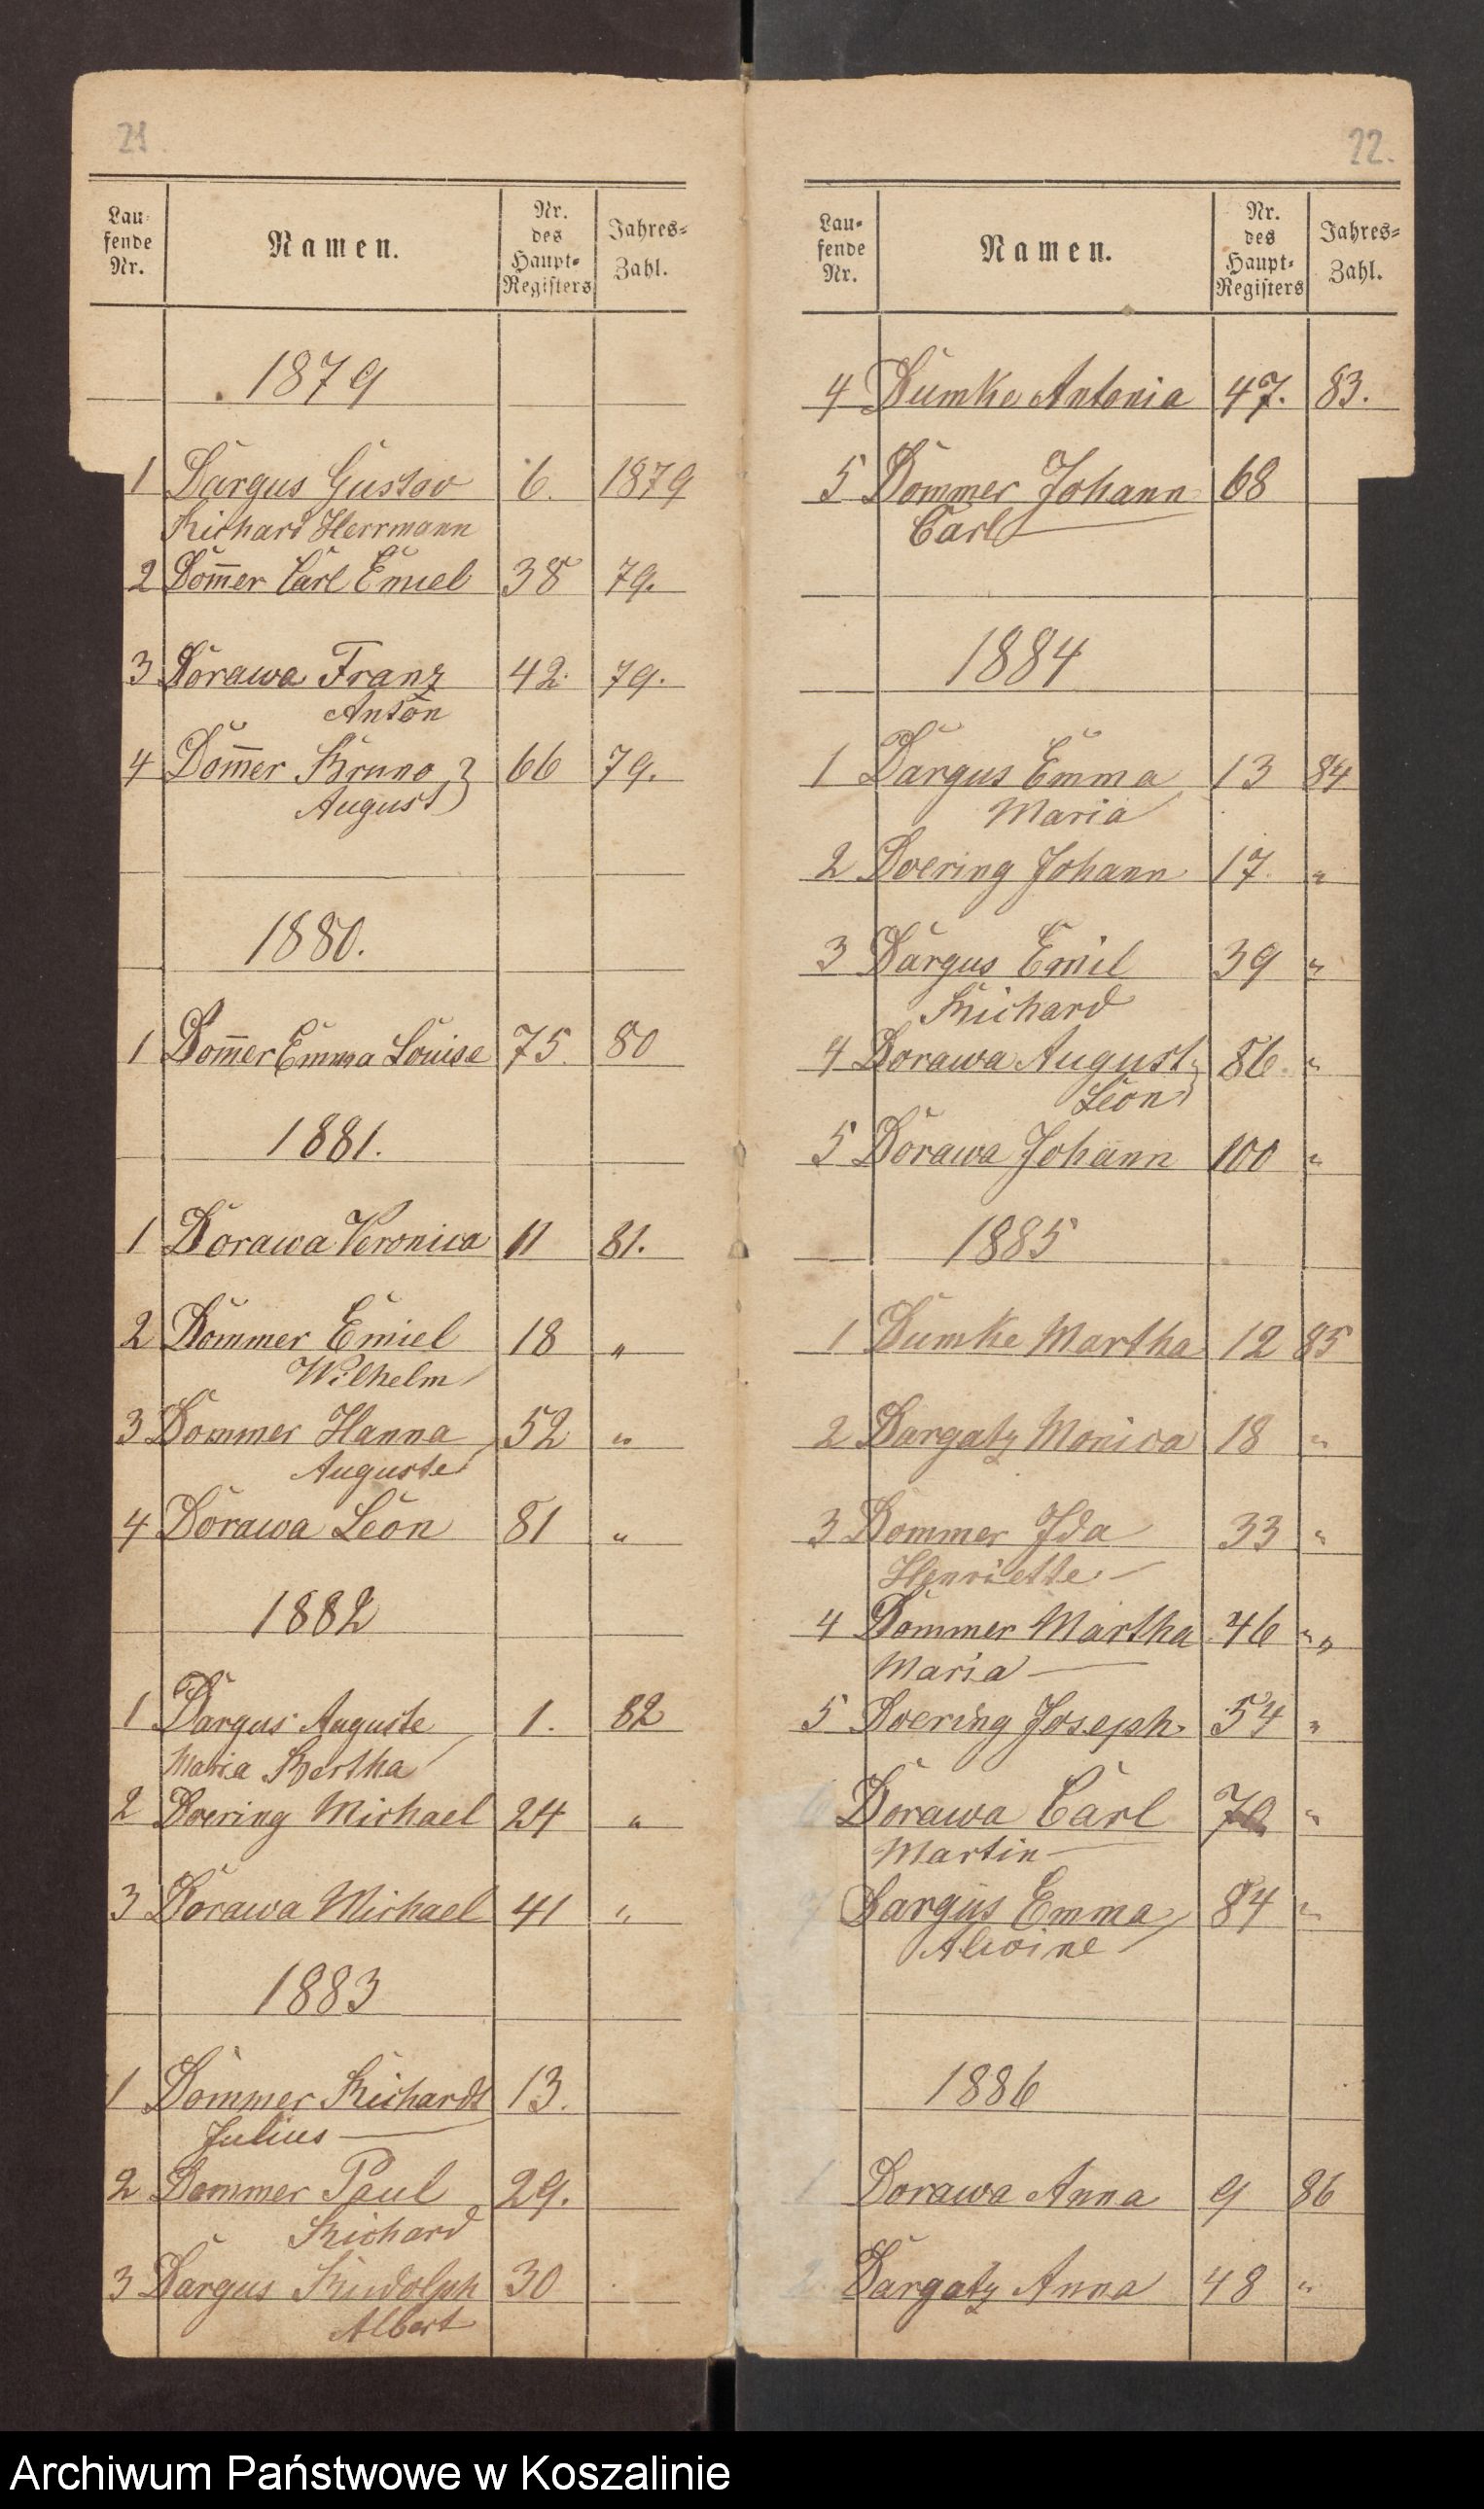 21.
Lau-
fende
Nr.
Namen.
Nr.
des
Haupt-
Registers
Jahres-
Zahl.
1879
1 Dargus Gustav 6. 1879
Richard Herrmann
2 Dom̅er Carl Emiel 38 79.
3 Dorawa Franz 42. 79.
Anton
4 Dom̅er Bruno 66 79.
August
1880.
1 Dom̅er Emma Louise 75. 80
1881.
1 Dorawa Veronica 11 81.
2 Dommer Emiel 18 "
Wilhelm
3 Dommer Hanna 52 "
Auguste
4 Dorawa Leon 81 "
1882
1 Dargus Auguste 1. 82
Maria Bertha
2 Doering Michael 24 "
3 Dorawa Michael 41 "
1883
1 Dommer Richardt 13.
Julius
2 Dommer Paul 29.
Richard
3 Dargus Rudolph 30
Albert
22.
Lau-
fende
Nr.
Namen.
Nr.
des
Haupt-
Registers
Jahres-
Zahl.
4 Dumke Antonia 47. 83.
5 Dommer Johann 68
Carl
1884
1 Dargus Emma 13 84
Maria
2 Doering Johann 17. "
3 Dargus Emil 39 "
Richard
4 Dorawa August 86. "
Leon
5 Dorawa Johann 100 "
1885
1 Dumke Martha 12 85
2 Dargatz Monica 18 "
3 Dommer Ida 33 "
Henriette
4 Dommer Martha 46 " "
Maria
5 Doering Joseph. 54 "
6 Dorawa Carl 70 "
Martin
7 Dargus Emma 84 "
Alwine
1886
1 Dorawa Anna 9 86
2. Dargatz Anna 48 "
Archiwum Państwowe w Koszalinie